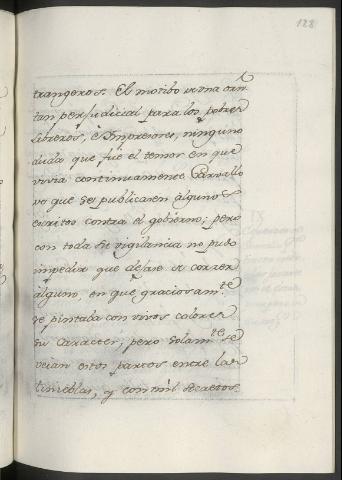 128
trangeros. El motibo de una orn
tan perjudicial para los pobres
Libreros, é Impresores, ninguno
duda que fué el temor en que
vivia continuamente Carvallo
vo que se publicasen algunos
escritos contra el gobierno; pero
con toda su vigilancia no pudo
impedir que dejase de correr
alguno, en que graciosam.te
se pintaba con vivos colores
su caracter; pero solam.te se
veian estos partos entre las
tinieblas, y con mil secretos.